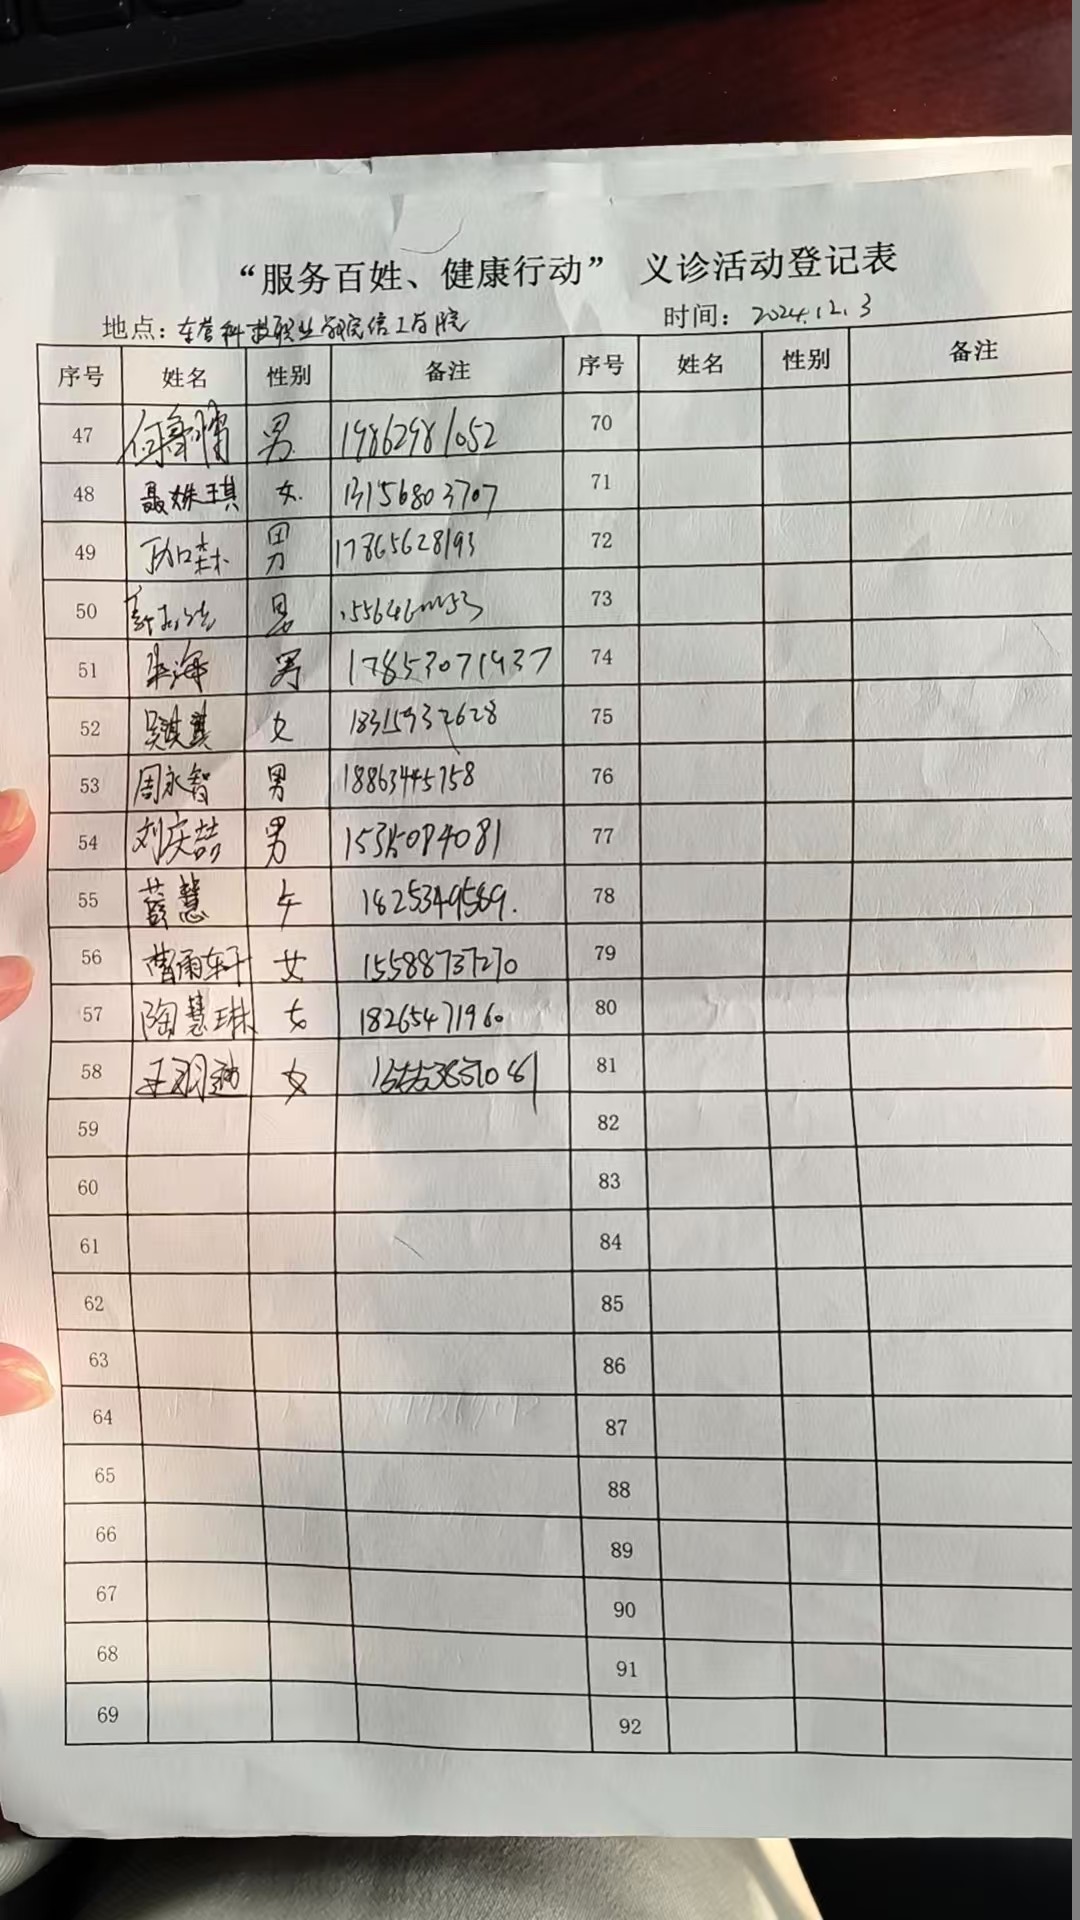 “服务百姓、健康行动” 义诊活动登记表
地点：东营科技职业学院信工学院 时间：2024.12.3
序号 姓名 性别 备注 序号 姓名 性别 备注
47 何 男 19862981052 70
48 聂姝琪 女. 13156803707 71
49 森 男 17865628193 72
50 男 73
51 海 男 17853071937 74
52 吴淇 女 18315932628 75
53 周永智 男 18863445758 76
54 刘庆喆 男 77
55 慧 女 1825349589. 78
56 曹雨轩 女 15588737270 79
57 陶慧琳 女 18265471960 80
58 王羽 女 81
59 82
60 83
61 84
62 85
63 86
64 87
65 88
66 89
67 90
68 91
69 92